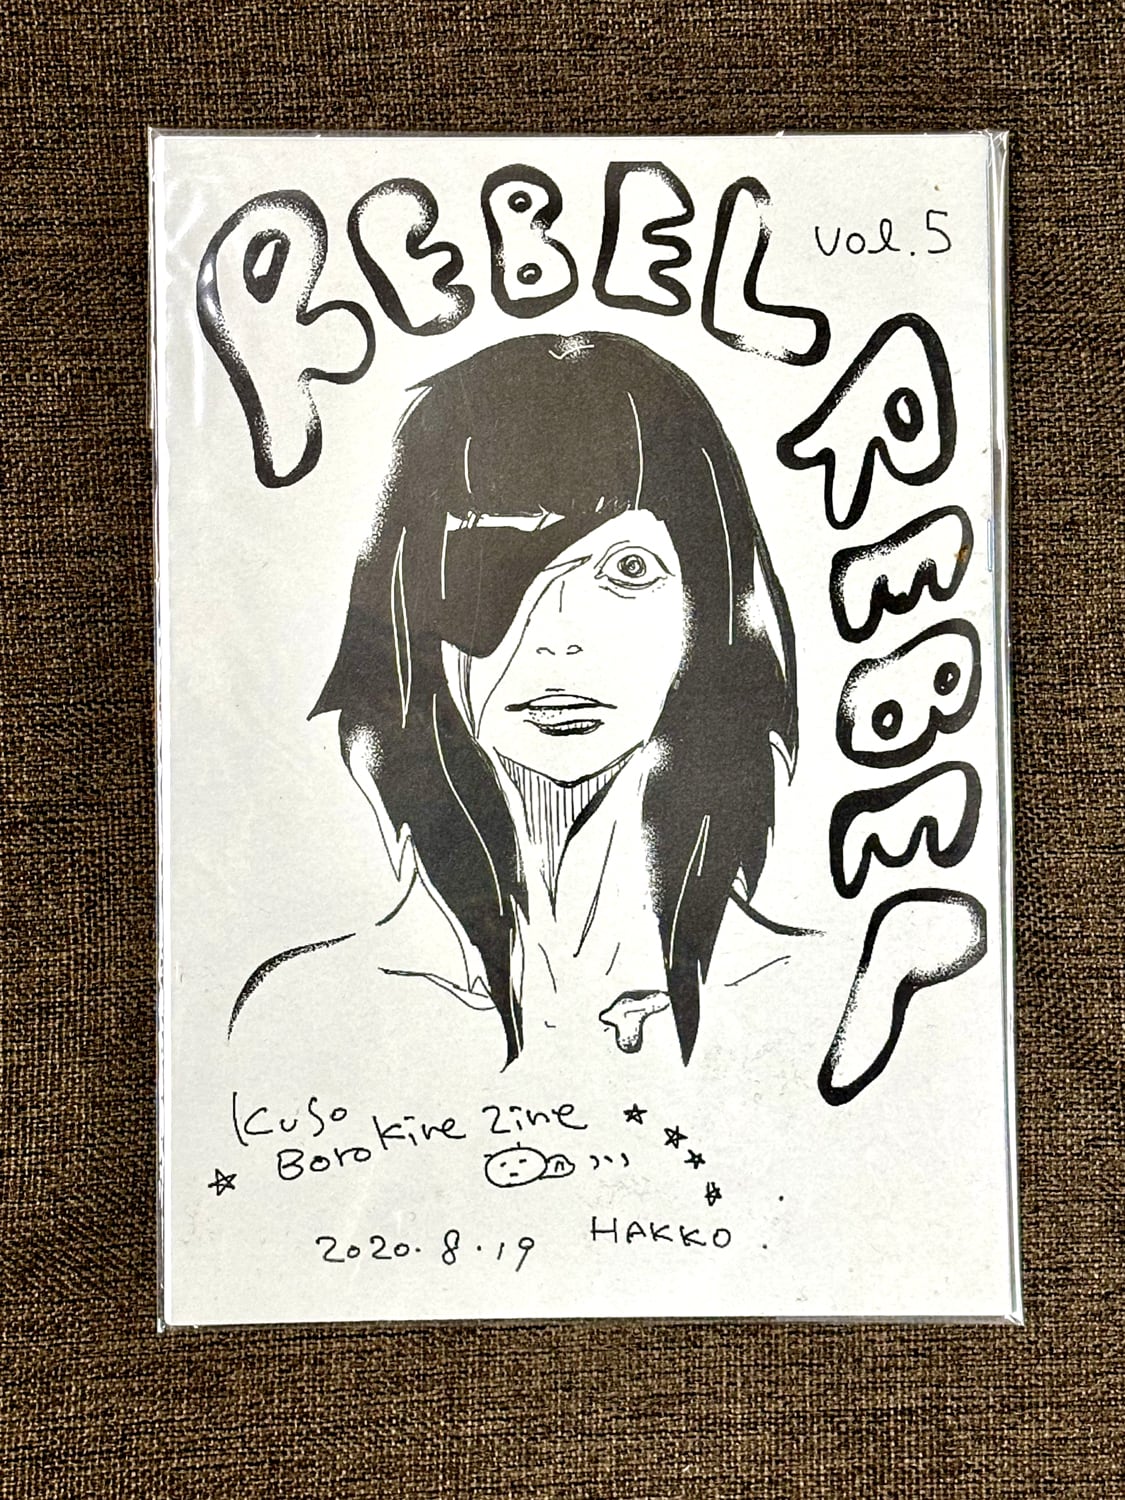 REBEL
REBEL
vol.5
Kuso
Borokire Zine
2020.8.19
HAKKO.